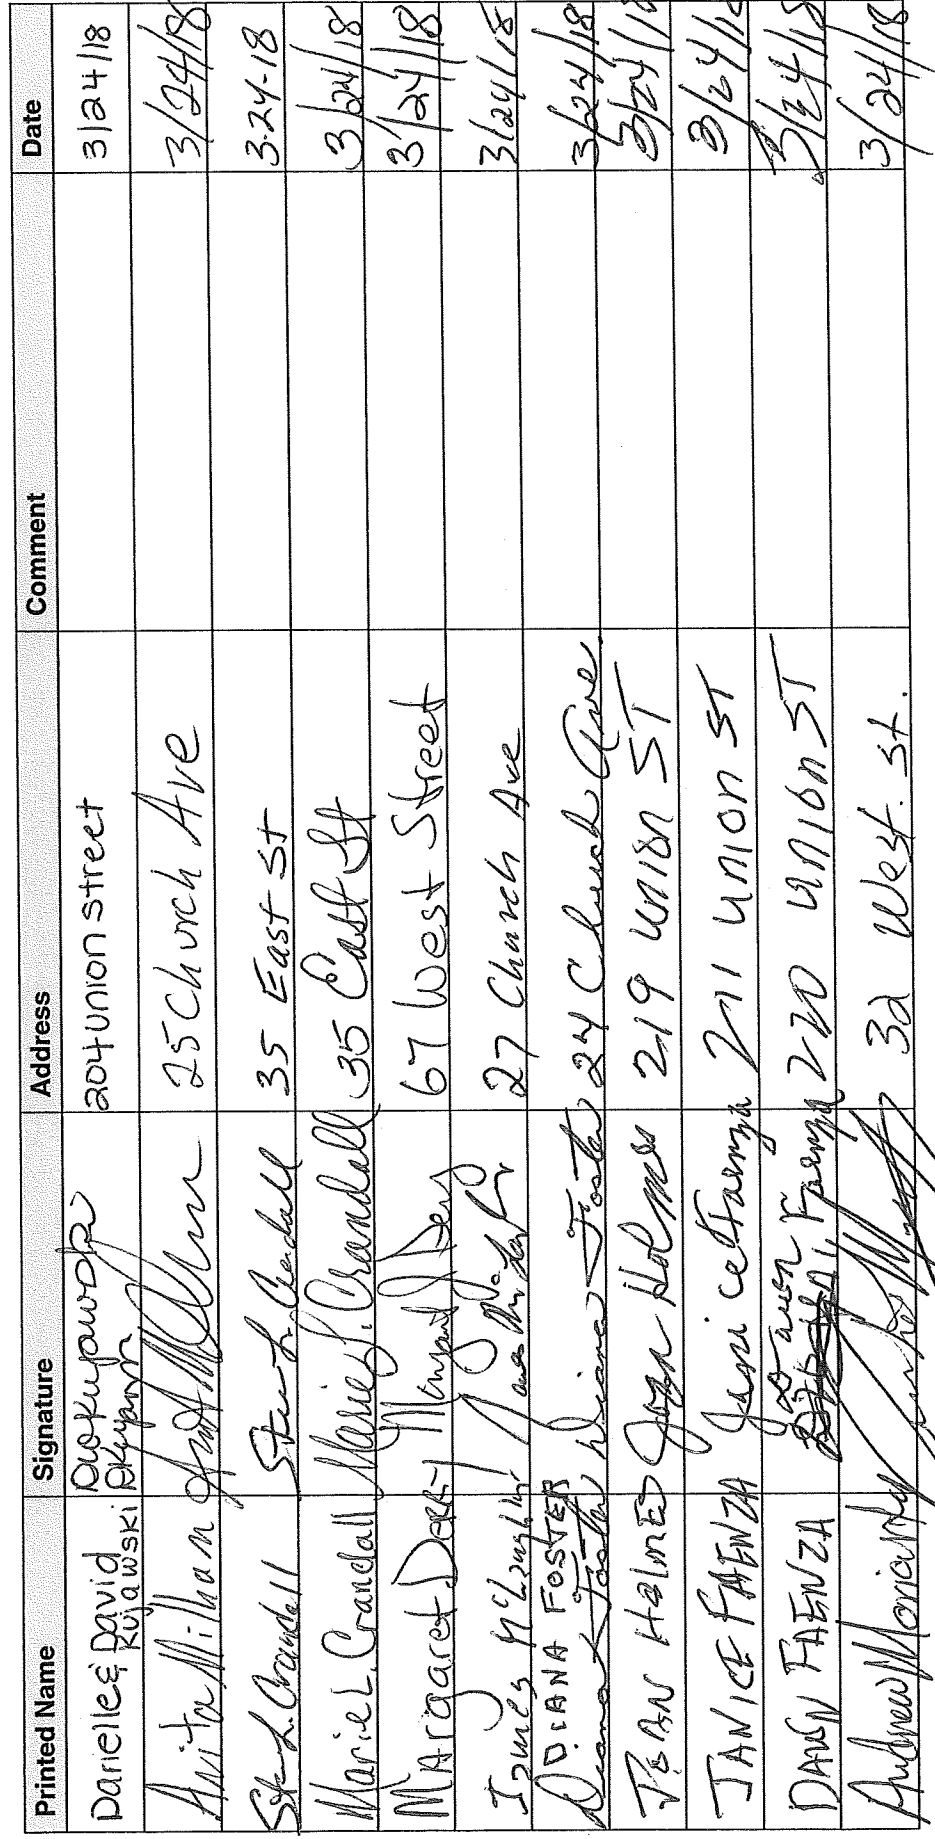 Printed Name Signature Address Comment Date
Darielle & David Kujawski DKujawski 204 union street 3/24/18
Anita Milham 25 Church Ave 3/24/18
Crandall Crandall 35 East St 3-24-18
Marie L. Crandall Marie L. Crandall 35 East St 3/24/18
Margaret Derry Margaret Derry 67 West Street 3/24/18
James McLaughlin 27 Church Ave 3/24/18
DIANA FOSTER Diana Foster Diana Foster 24 Church Ave. 3/24/18
JOAN HOLMES Joan Holmes 219 UNION ST 3/24/18
JANICE FAENZA Janice Faenza 211 UNION ST 3/24/18
DAWN FAENZA Dawn Faenza 220 UNION ST 3/24/18
Andrew Moriarty 32 West. St. 3/24/18